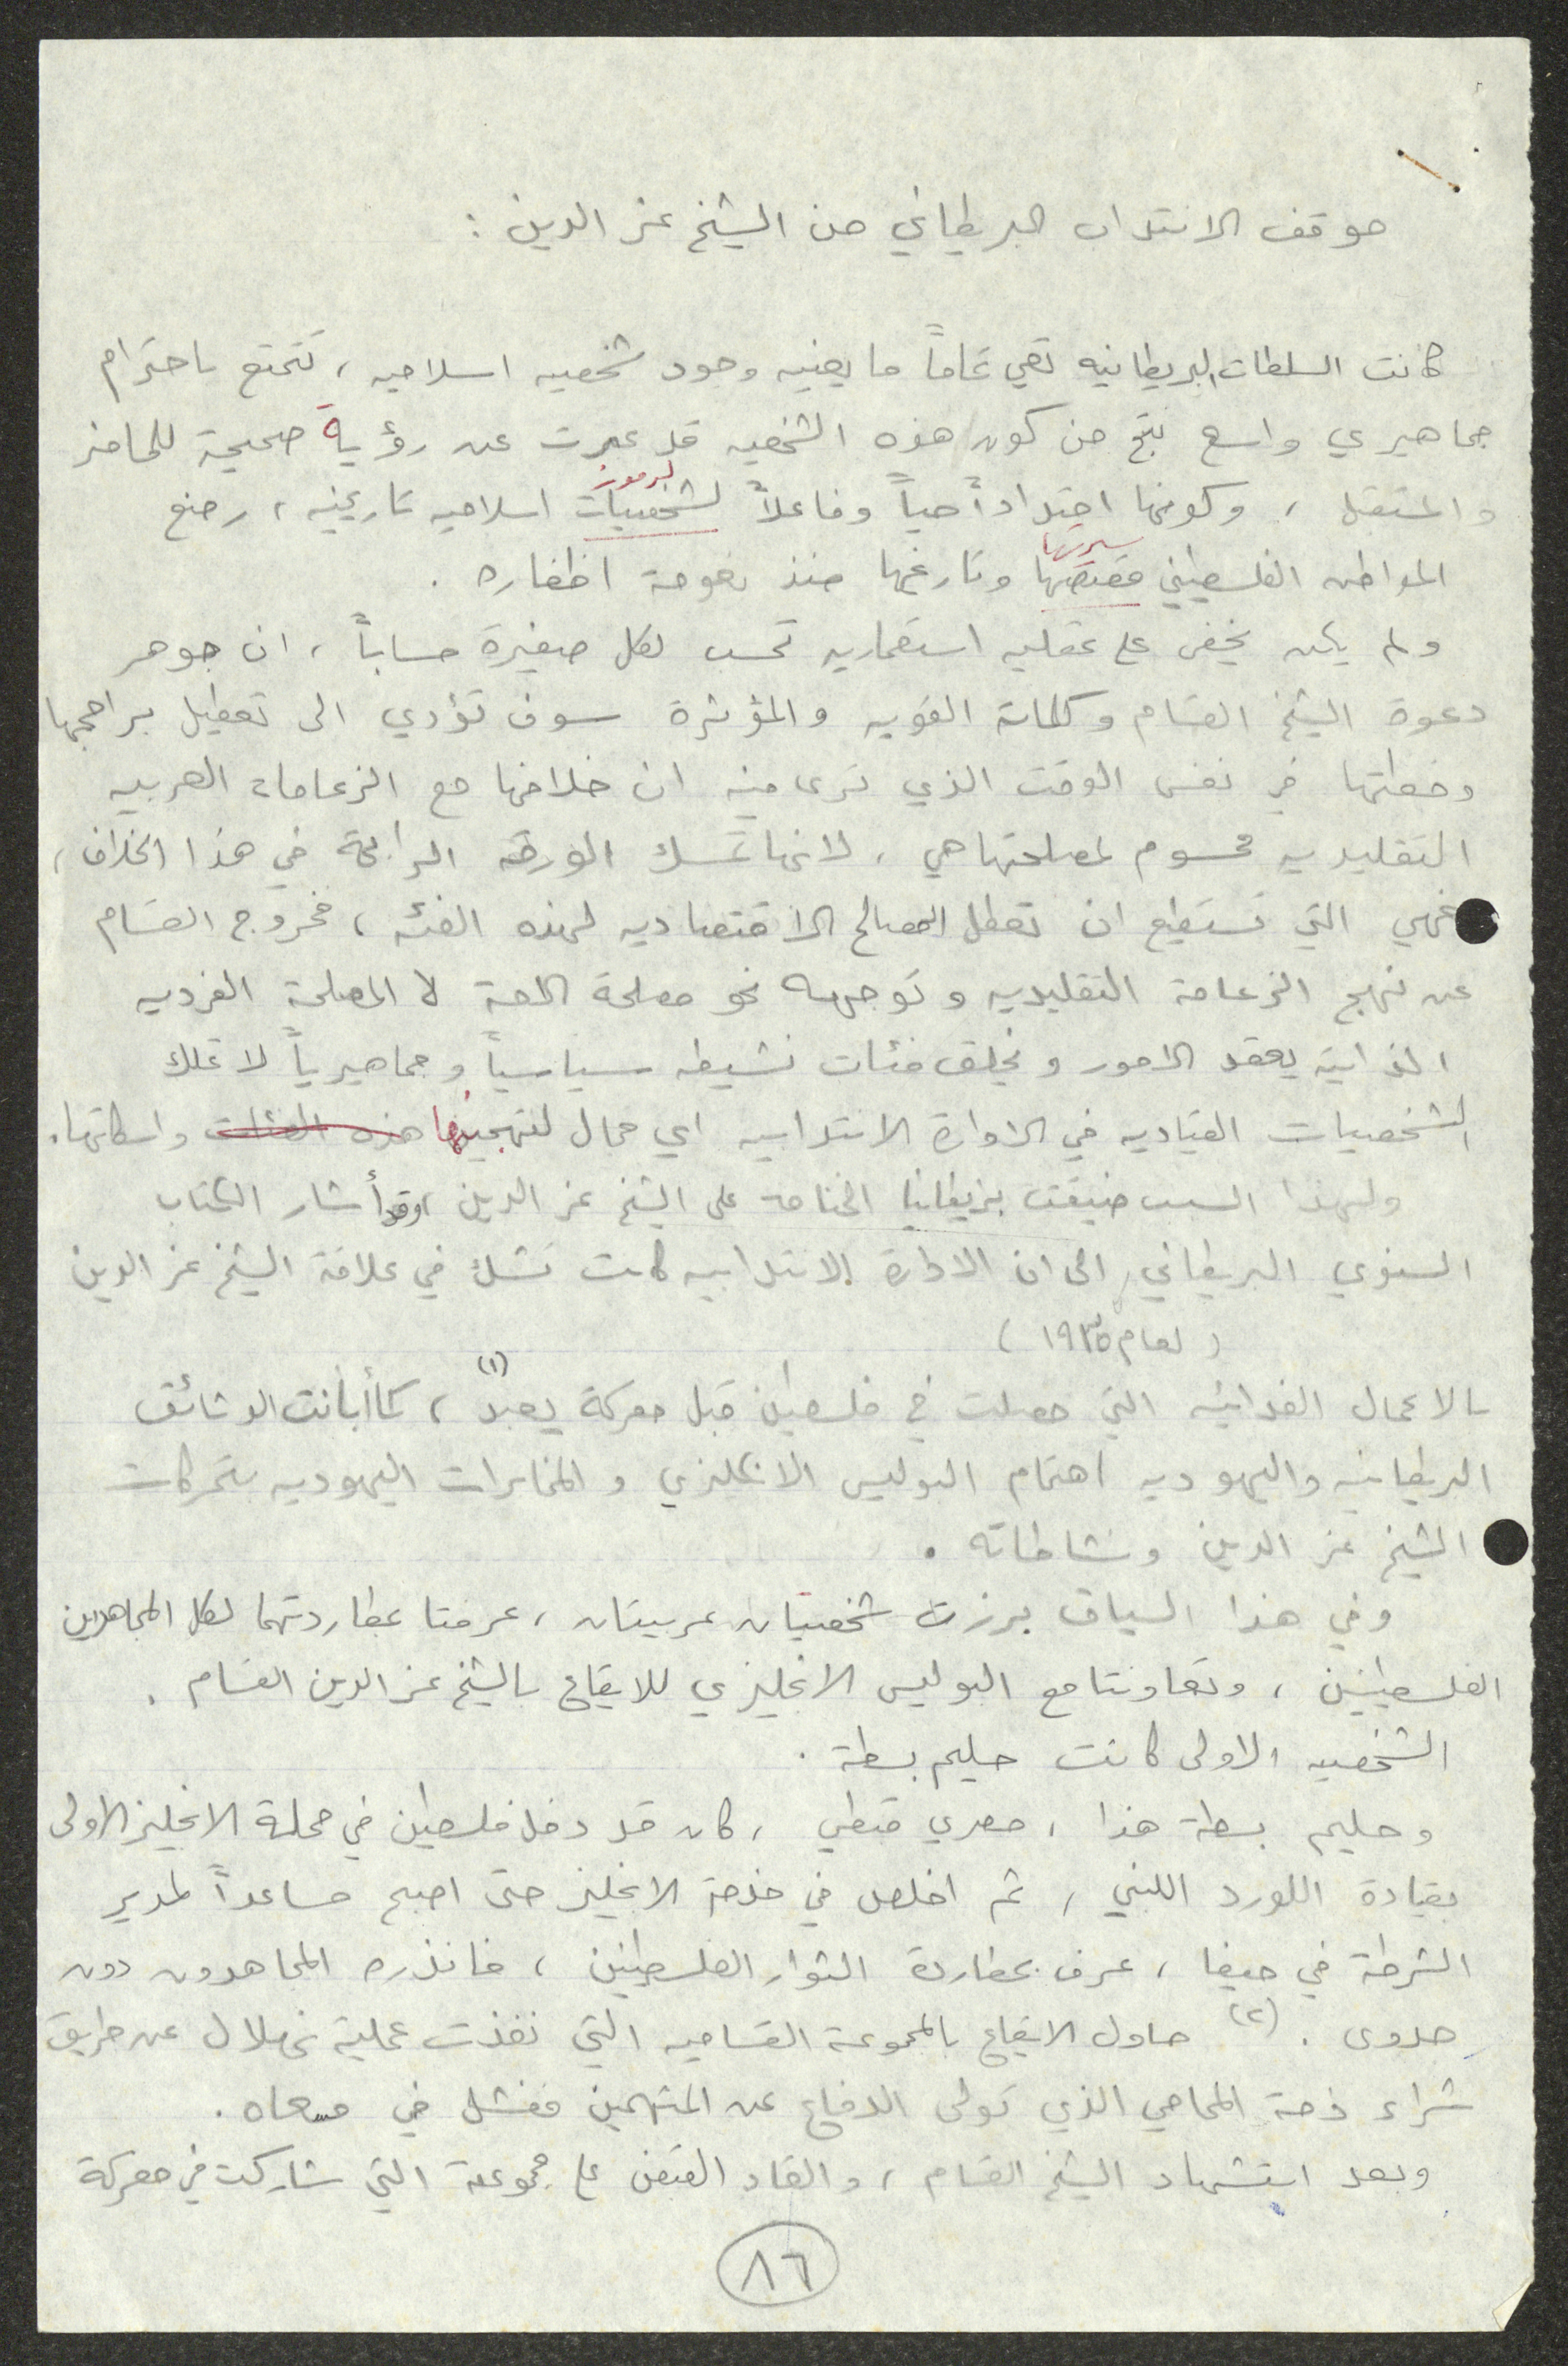 موقف الانتداب البريطاني من الشيخ عز الدين :
كانت السلطات البريطانيه تعي تماماً ما يعنيه وجود شخصيه اسلاميه ، تتمتع باحترام
جماهيري واسع نتج من كون هذه الشخصيه قد عبرت عن رؤية صحيحة للحاضر
لرموز
والمستقبل ، وكونها امتداداً حياً وفاعلاً لشخصيات اسلاميه تاريخيه ، رضع
سيرتها
المواطن الفلسطيني قصتها وتاريخها منذ نعومة اظفاره .
ولم يكن يخفى على عقليه استعماريه تحسب لكل صغيرة حساباً ، ان جوهر
دعوة الشيخ القسام وكلماته القويه والمؤثرة سوف تؤدي الى تعطيل برامجها
وخططها في نفس الوقت الذي ترى فيه ان خلافها مع الزعامات العربيه
التقليديه محسوم لمصلحتها هي ، لانها تمسك الورقه الرابحة في هذا الخلاف ،
فهي التي تستطيع ان تعطل المصالح الاقتصاديه لهذه الفئه ، فخروج القسام
عن نهج الزعامة التقليديه وتوجهه نحو مصلحة الامة لا المصلحة الفرديه
الذاتيه يعقد الامور ويخلق فئات نشيطه سياسياً وجماهيرياً لا تملك
الشخصيات القياديه في الادارة الانتدابيه اي مجال لتهجينها هذه الفئات واسكاتها .
ولهذا السبب ضيقت بريطانيا الخناق على الشيخ عز الدين ، وقد أشار الكتاب
السنوي البريطاني الى ان الادارة الانتدابيه كانت تشك في علاقة الشيخ عز الدين
( لعام ١٩٣٥ )
بالاعمال الفدائيه التي حصلت في فلسطين قبل معركة يعبد (١) ، كما أبانت الوثائق
البريطانيه واليهوديه اهتمام البوليس الانكليزي والمخابرات اليهوديه بتحركات
الشيخ عز الدين ونشاطاته .
وفي هذا السياق برزت شخصيتان عربيتان ، عرفتا بمطاردتهما لكل المجاهدين
الفلسطينيين ، وتعاونتا مع البوليس الانجليزي للايقاع بالشيخ عز الدين القسام .
الشخصيه الاولى كانت حليم بسطة .
وحليم بسطة هذا ، مصري قبطي ، كان قد دخل فلسطين في حملة الانجليز الاولى
بقيادة اللورد اللنبي ، ثم اخلص في خدمة الانجليز حتى اصبح مساعداً لمدير
الشرطة في حيفا ، عرف بمطاردة الثوار الفلسطينين ، فانذره المجاهدون دون
جدوى . (٢) حاول الايقاع بالمجموعة القساميه التي نفذت عملية نهلال عن طريق
شراء ذمة المحامي الذي تولى الدفاع عن المتهمين ففشل في مسعاه .
وبعد استشهاد الشيخ القسام ، والقاء القبض على مجموعة التي شاركت في معركة
٨٦